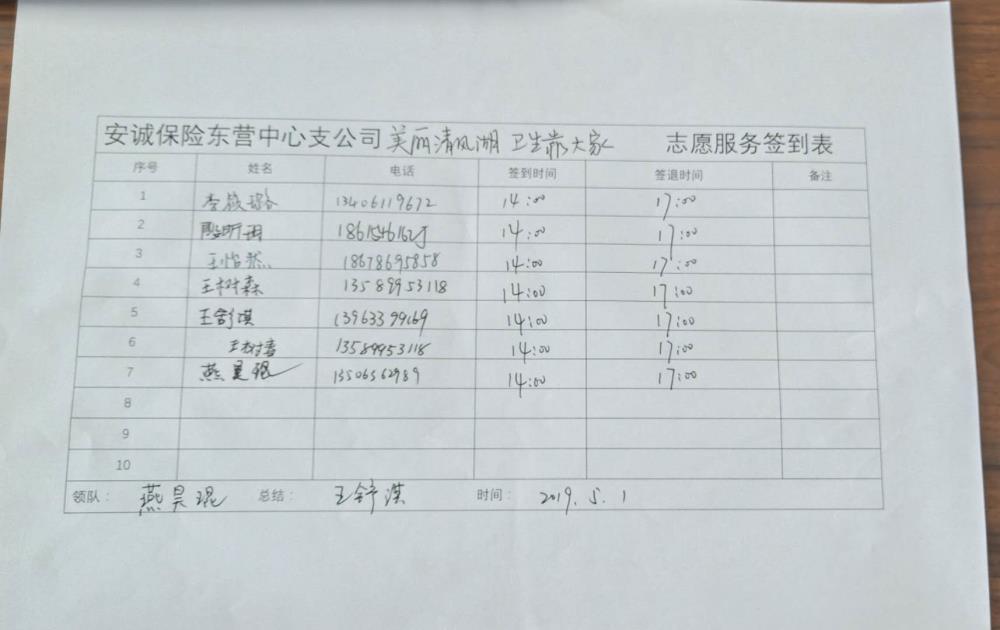 安诚保险东营中心支公司 美丽清风湖 卫生靠大家 志愿服务签到表
序号 姓名 电话 签到时间 签退时间 备注
1 李筱璐 13406119672 14:00 17:00
2 殷昕田 14:00 17:00
3 王怡然 18678695858 14:00 17:00
4 王树森 13589953118 14:00 17:00
5 王舒淇 13963399169 14:00 17:00
6 13589953118 14:00 17:00
7 燕昊琨 13506362989 14:00 17:00
8
9
10
领队： 燕昊琨 总结： 王舒淇 时间： 2019.5.1